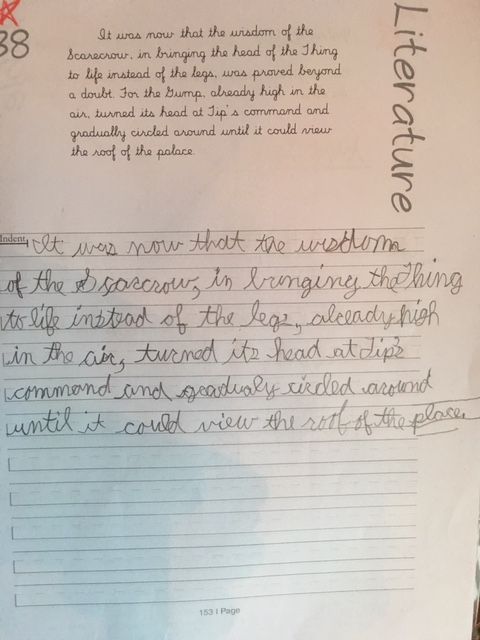 38
Literature
It was now that the wisdom of the
Scarecrow, in bringing the head of the Thing
to life instead of the legs, was proved beyond
a doubt. For the Gump, already high in the
air, turned its head at Tip's command and
gradually circled around until it could view
the roof of the palace.
Indent
It was now that the wisdom
of the Scarecrow, in bringing the Thing
to life instead of the legs, already high
in the air, turned its head at Tip's
command and gradualy circled around
until it could view the roof of the place.
153 | Page